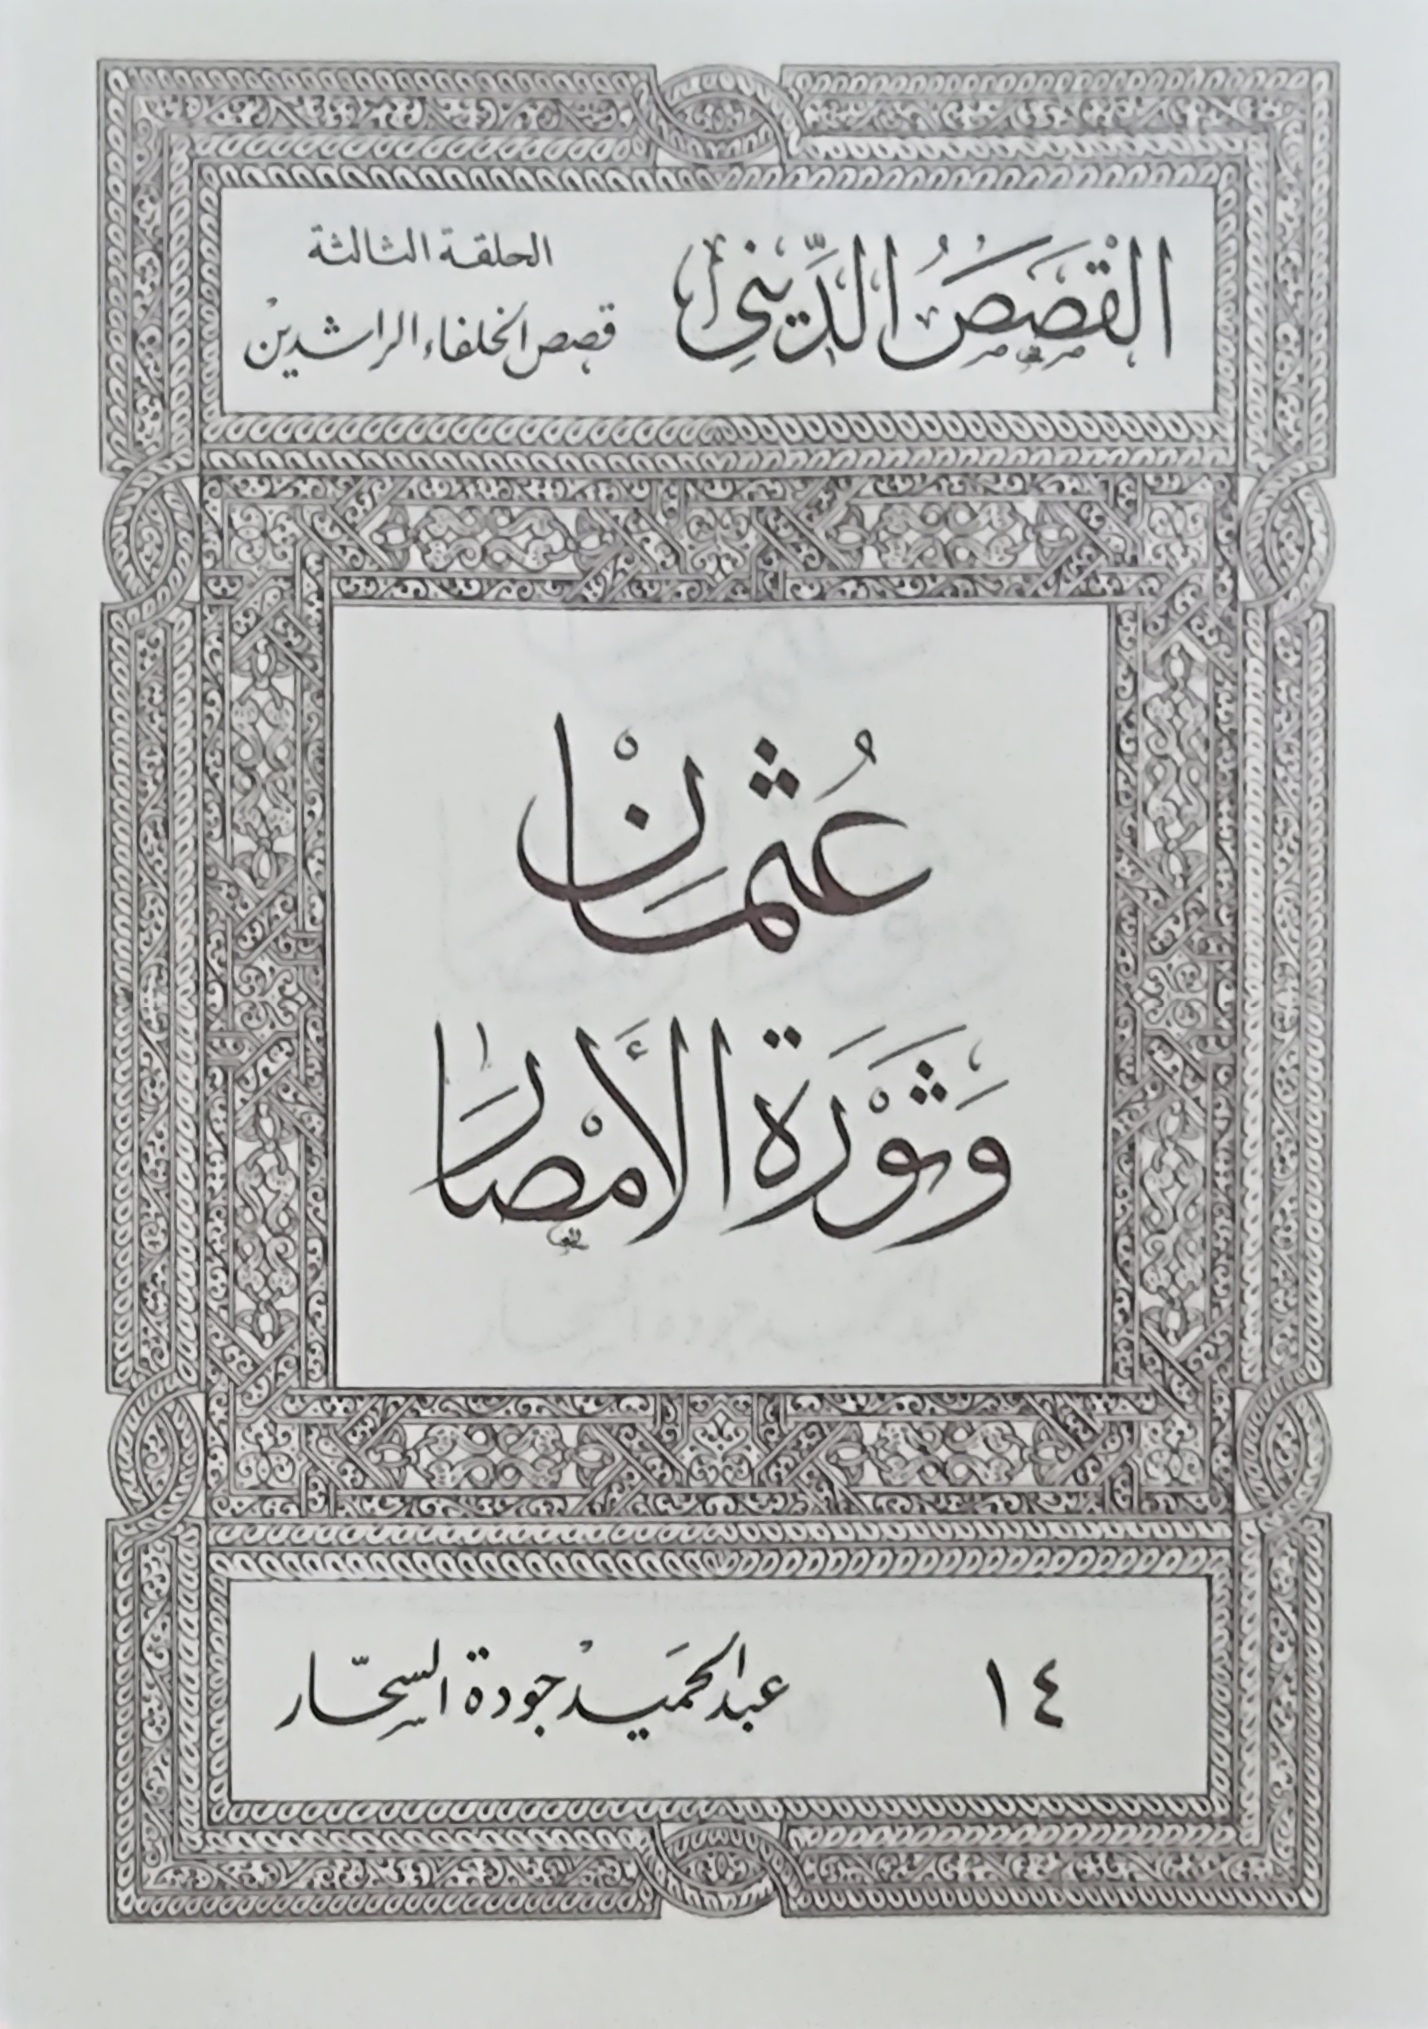 القَصَصُ الدِّينِي
الحلقة الثالثة
قصص الخلفاء الراشدين
عُثمَانْ
وَثَوْرَة الأَمْصَار
١٤
عبد الحَميدْ جودة السحّار